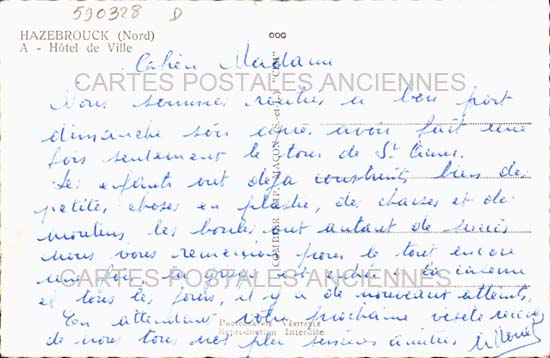 590328 D
HAZEBROUCK (Nord)
A - Hôtel de Ville
Chère Madame
CARTES POSTALES ANCIENNES
Nous sommes rentrés à bon port
dimanche soir après avoir fait une
fois seulement le tour de St
Les enfants ont déjà construit bien de
petites choses en plastic, des chaises et de
moulins, les boules ont autant de succès
nous vous remercions pour le tout encore
une fois. la
CARTES POSTALES ANCIENNES
et tous les jours, il y a de nouveaux
En attendant votre prochaine visite
de nous tous nos plus
PHOTOGRAPHIE VÉRITABLE
Reproduction Interdite
COMBIER IMP. MACON (S.-et-L.) "CIM"